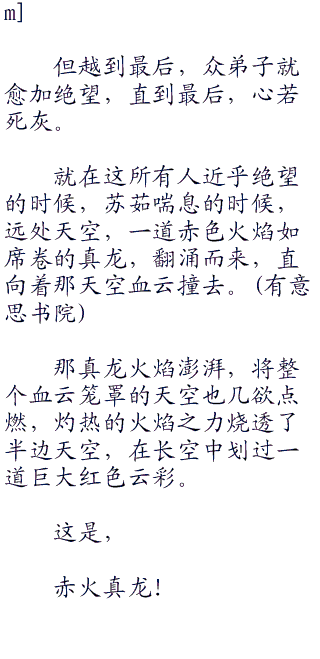 m]
但越到最后，众弟子就
愈加绝望，直到最后，心若
死灰。
就在这所有人近乎绝望
的时候，苏茹喘息的时候，
远处天空，一道赤色火焰如
席卷的真龙，翻涌而来，直
向着那天空血云撞去。(有意
思书院)
那真龙火焰澎湃，将整
个血云笼罩的天空也几欲点
燃，灼热的火焰之力烧透了
半边天空，在长空中划过一
道巨大红色云彩。
这是，
赤火真龙!